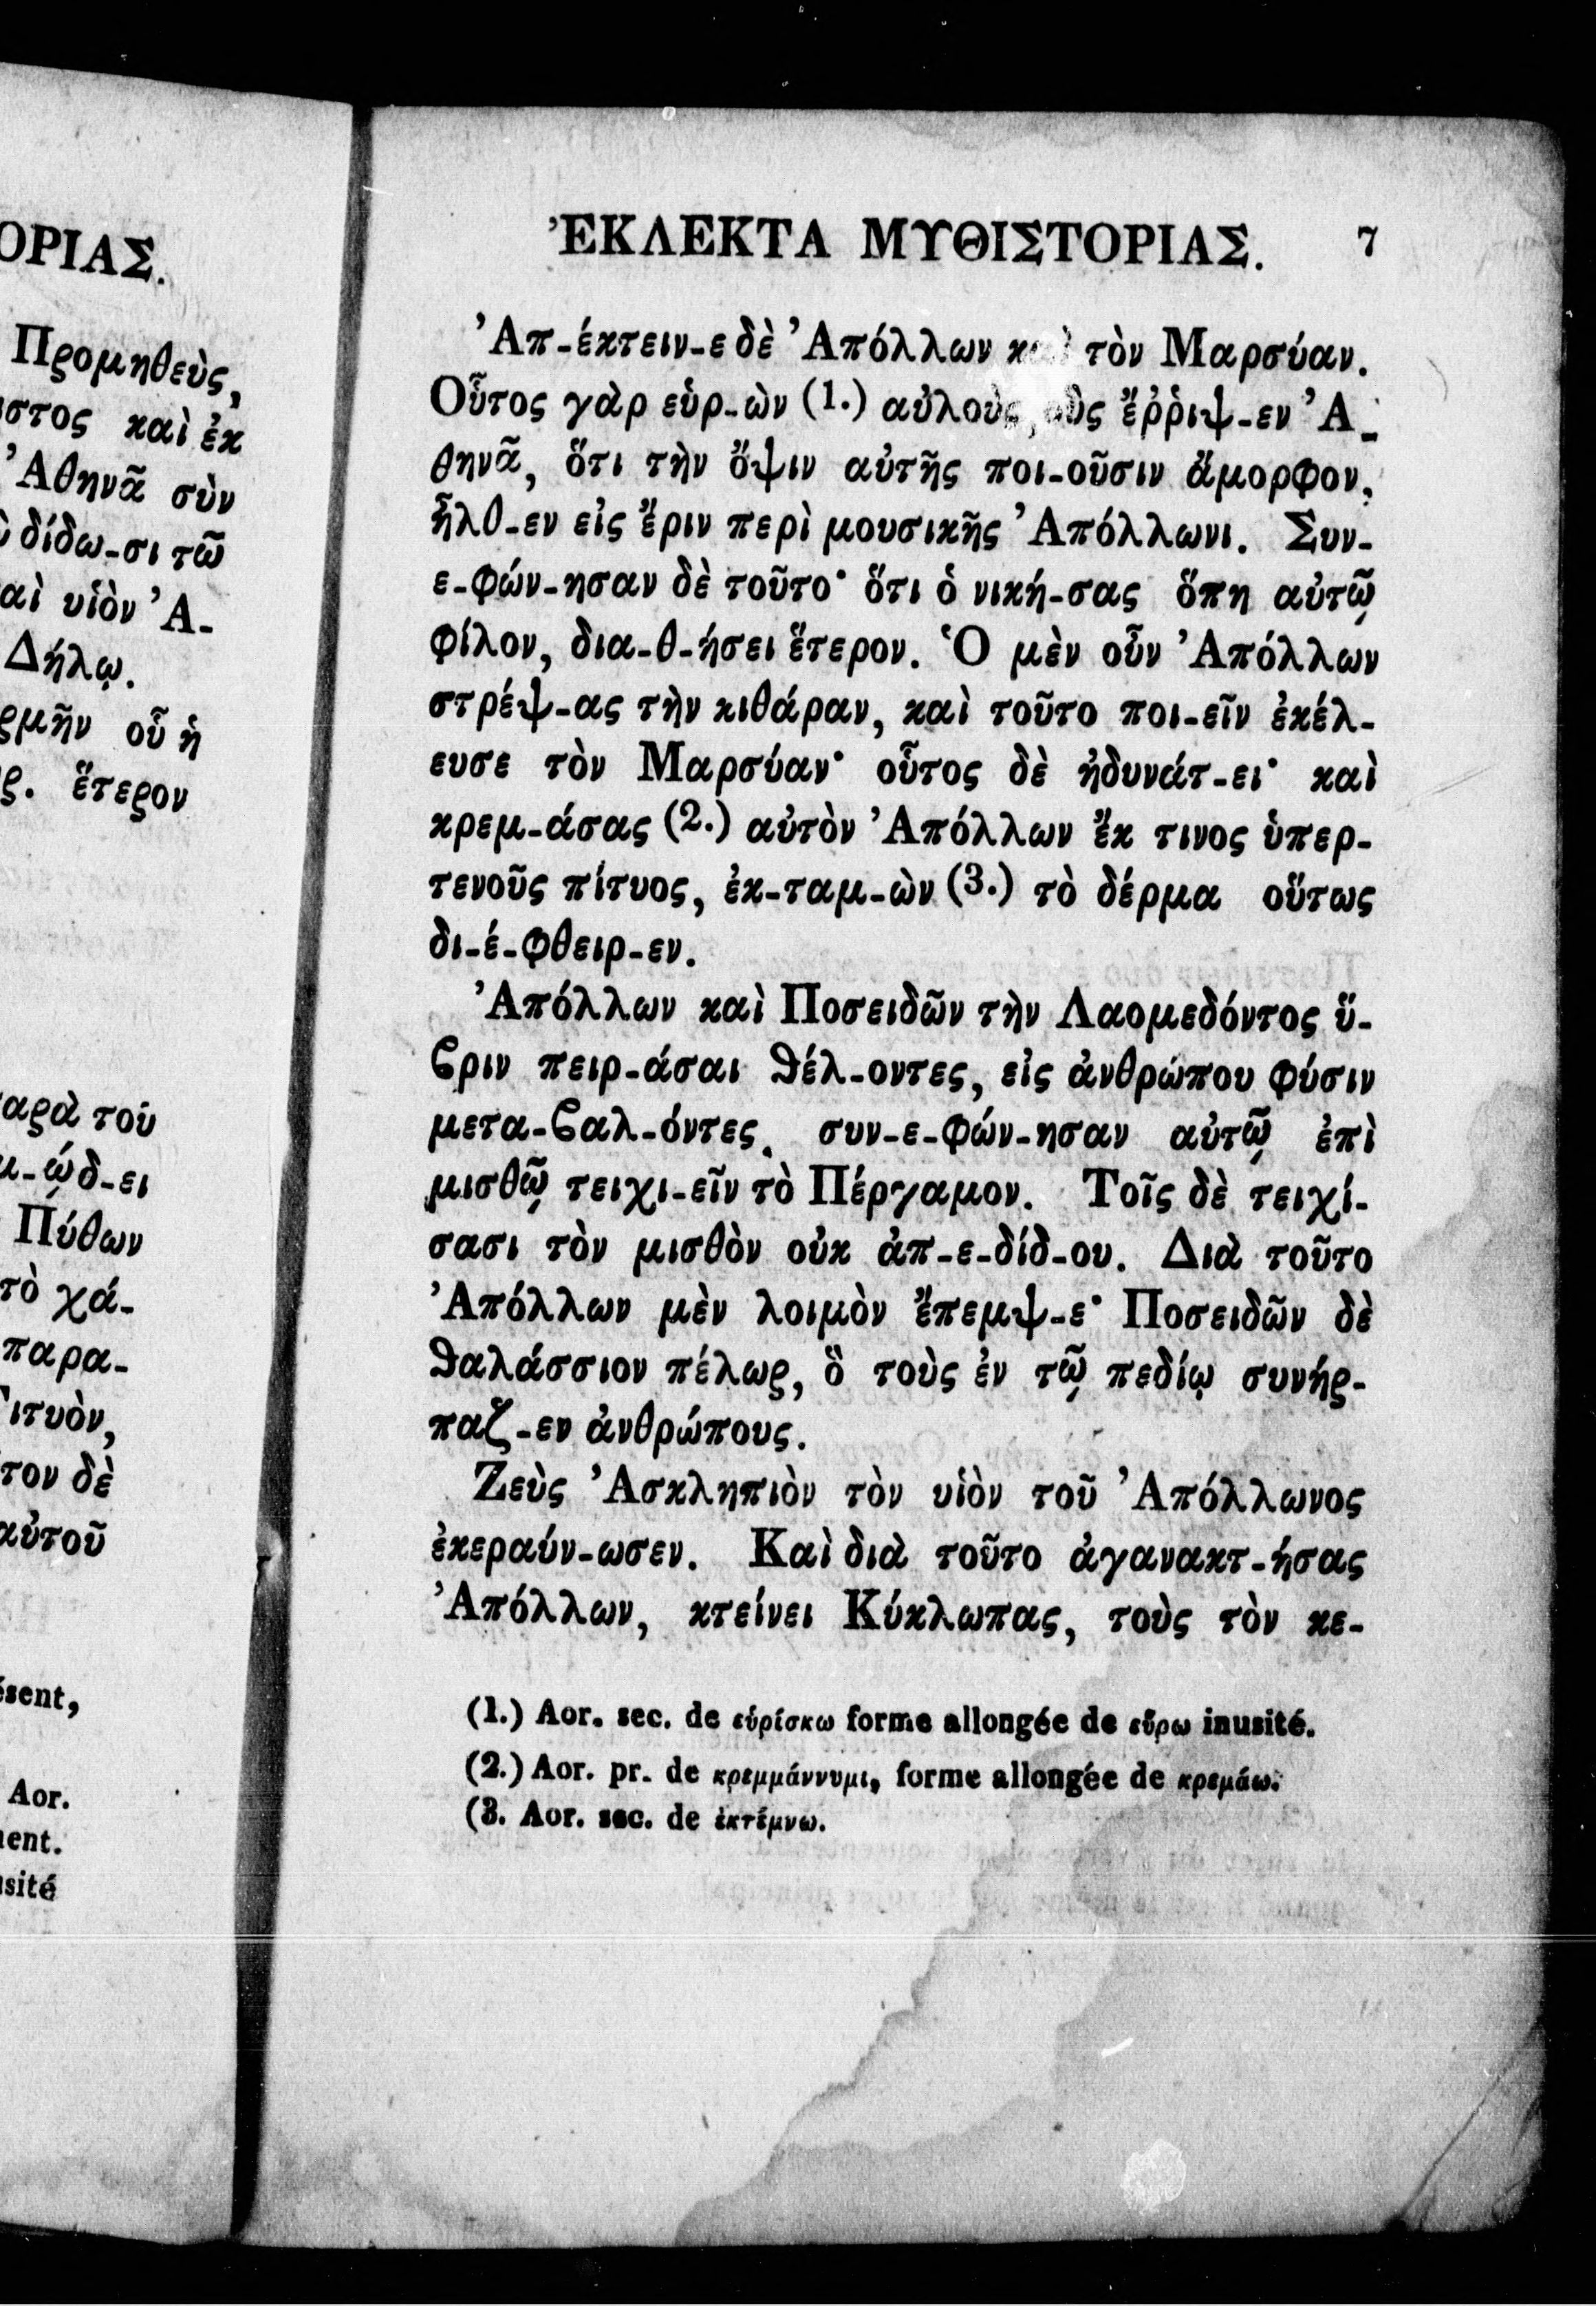 ΟΡΙΑΣ.
Προμηθεὺς,
ιστος καὶ ἐκ
Ἀθηνᾶ σὺν
δίδω-σι τῶ
αὶ υἱὸν Ἀ-
Δήλῳ.
ρμῆν οὗ ἡ
ς. ἕτερον
αρὰ τοῦ
μ-ῴδ-ει
Πύθων
τὸ χά-
παρα-
Τιτυὸν,
τον δὲ
αὐτοῦ
ésent,
Aor.
ment.
usité
ἘΚΛΕΚΤΑ ΜΥΘΙΣΤΟΡΙΑΣ. 7
Ἀπ-έκτειν-ε δὲ Ἀπόλλων καὶ τὸν Μαρσύαν.
Οὗτος γὰρ εὑρ-ὼν (1.) αὐλοὺς, οὓς ἔῤῥιψ-εν Ἀ-
θηνᾶ, ὅτι τὴν ὄψιν αὐτῆς ποι-οῦσιν ἄμορφον,
ἦλθ-εν εἰς ἔριν περὶ μουσικῆς Ἀπόλλωνι. Συν-
ε-φών-ησαν δὲ τοῦτο· ὅτι ὁ νική-σας ὅπη αὐτῷ
φίλον, δια-θ-ήσει ἕτερον. Ὁ μὲν οὖν Ἀπόλλων
στρέψ-ας τὴν κιθάραν, καὶ τοῦτο ποι-εῖν ἐκέλ-
ευσε τὸν Μαρσύαν· οὗτος δὲ ἠδυνάτ-ει· καὶ
κρεμ-άσας (2.) αὐτὸν Ἀπόλλων ἔκ τινος ὑπερ-
τενοῦς πίτυος, ἐκ-ταμ-ὼν (3.) τὸ δέρμα οὕτως
δι-έ-φθειρ-εν.
Ἀπόλλων καὶ Ποσειδῶν τὴν Λαομεδόντος ὕ-
ϐριν πειρ-άσαι ϑέλ-οντες, εἰς ἀνθρώπου φύσιν
μετα-ϐαλ-όντες, συν-ε-φών-ησαν αὐτῷ ἐπὶ
μισθῷ τειχι-εῖν τὸ Πέργαμον. Τοῖς δὲ τειχί-
σασι τὸν μισθὸν οὐκ ἀπ-ε-δίδ-ου. Διὰ τοῦτο
Ἀπόλλων μὲν λοιμὸν ἔπεμψ-ε· Ποσειδῶν δὲ
ϑαλάσσιον πέλωρ, ὃ τοὺς ἐν τῷ πεδίῳ συνήρ-
παζ-εν ἀνθρώπους.
Ζεὺς Ἀσκληπιὸν τὸν υἱὸν τοῦ Ἀπόλλωνος
ἐκεραύν-ωσεν. Καὶ διὰ τοῦτο ἀγανακτ-ήσας
Ἀπόλλων, κτείνει Κύκλωπας, τοὺς τὸν κε-
(1.) Aor. sec. de εὑρίσκω forme allongée de εὕρω inusité.
(2.) Aor. pr. de κρεμμάννυμι, forme allongée de κρεμάω.
(3. Aor. sec. de ἐκτέμνω.